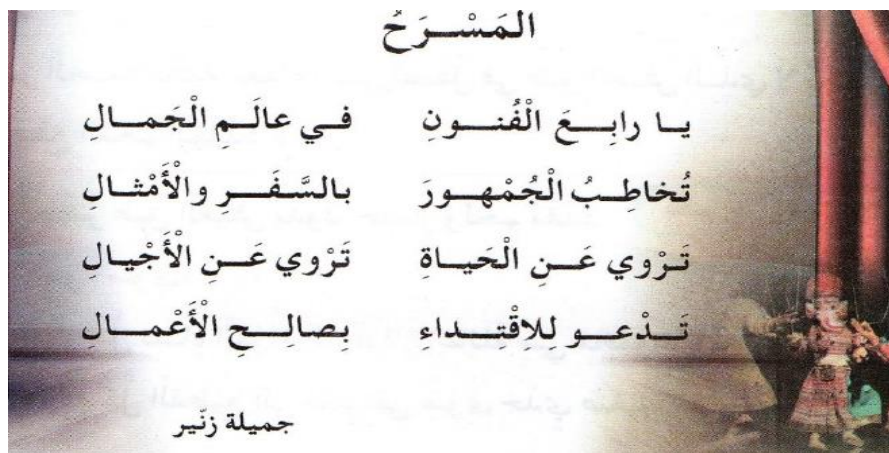 المَسْرَحُ
يا رابِعَ الْفُنونِ في عالَمِ الْجَمالِ
تُخاطِبُ الْجُمْهورَ بالسَّفَرِ والْأَمْثالِ
تَرْوي عَنِ الْحَياةِ تَرْوي عَنِ الْأَجْيالِ
تَدْعو لِلاِقْتِداءِ بِصالِحِ الْأَعْمالِ
جميلة زنّير